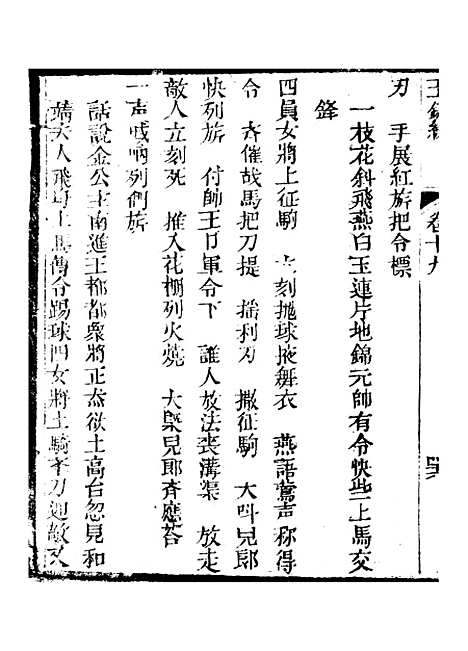 卷十九
刃　手展紅旂把令標
一枝花斜飛燕白玉連片地錦元帥有令快些上馬交
鋒
四員女將上征駒　立刻抛球掖舞衣　燕語鶯声称得
令　斉催战馬把刀提　搖利刃　撒征駒　大呌兒郎
快列旂　付帥王爷軍令下　誰人放法喪溝渠　放走
敵人立刻死　推入花棚列火燒　大衆兒郎斉應答
一声喊吶列們旂
話說金公主南進王柳都衆將正在欲土高台忽見和
端夫人飛马上馬傳令踢球四女將上騎斉刀迎敵又